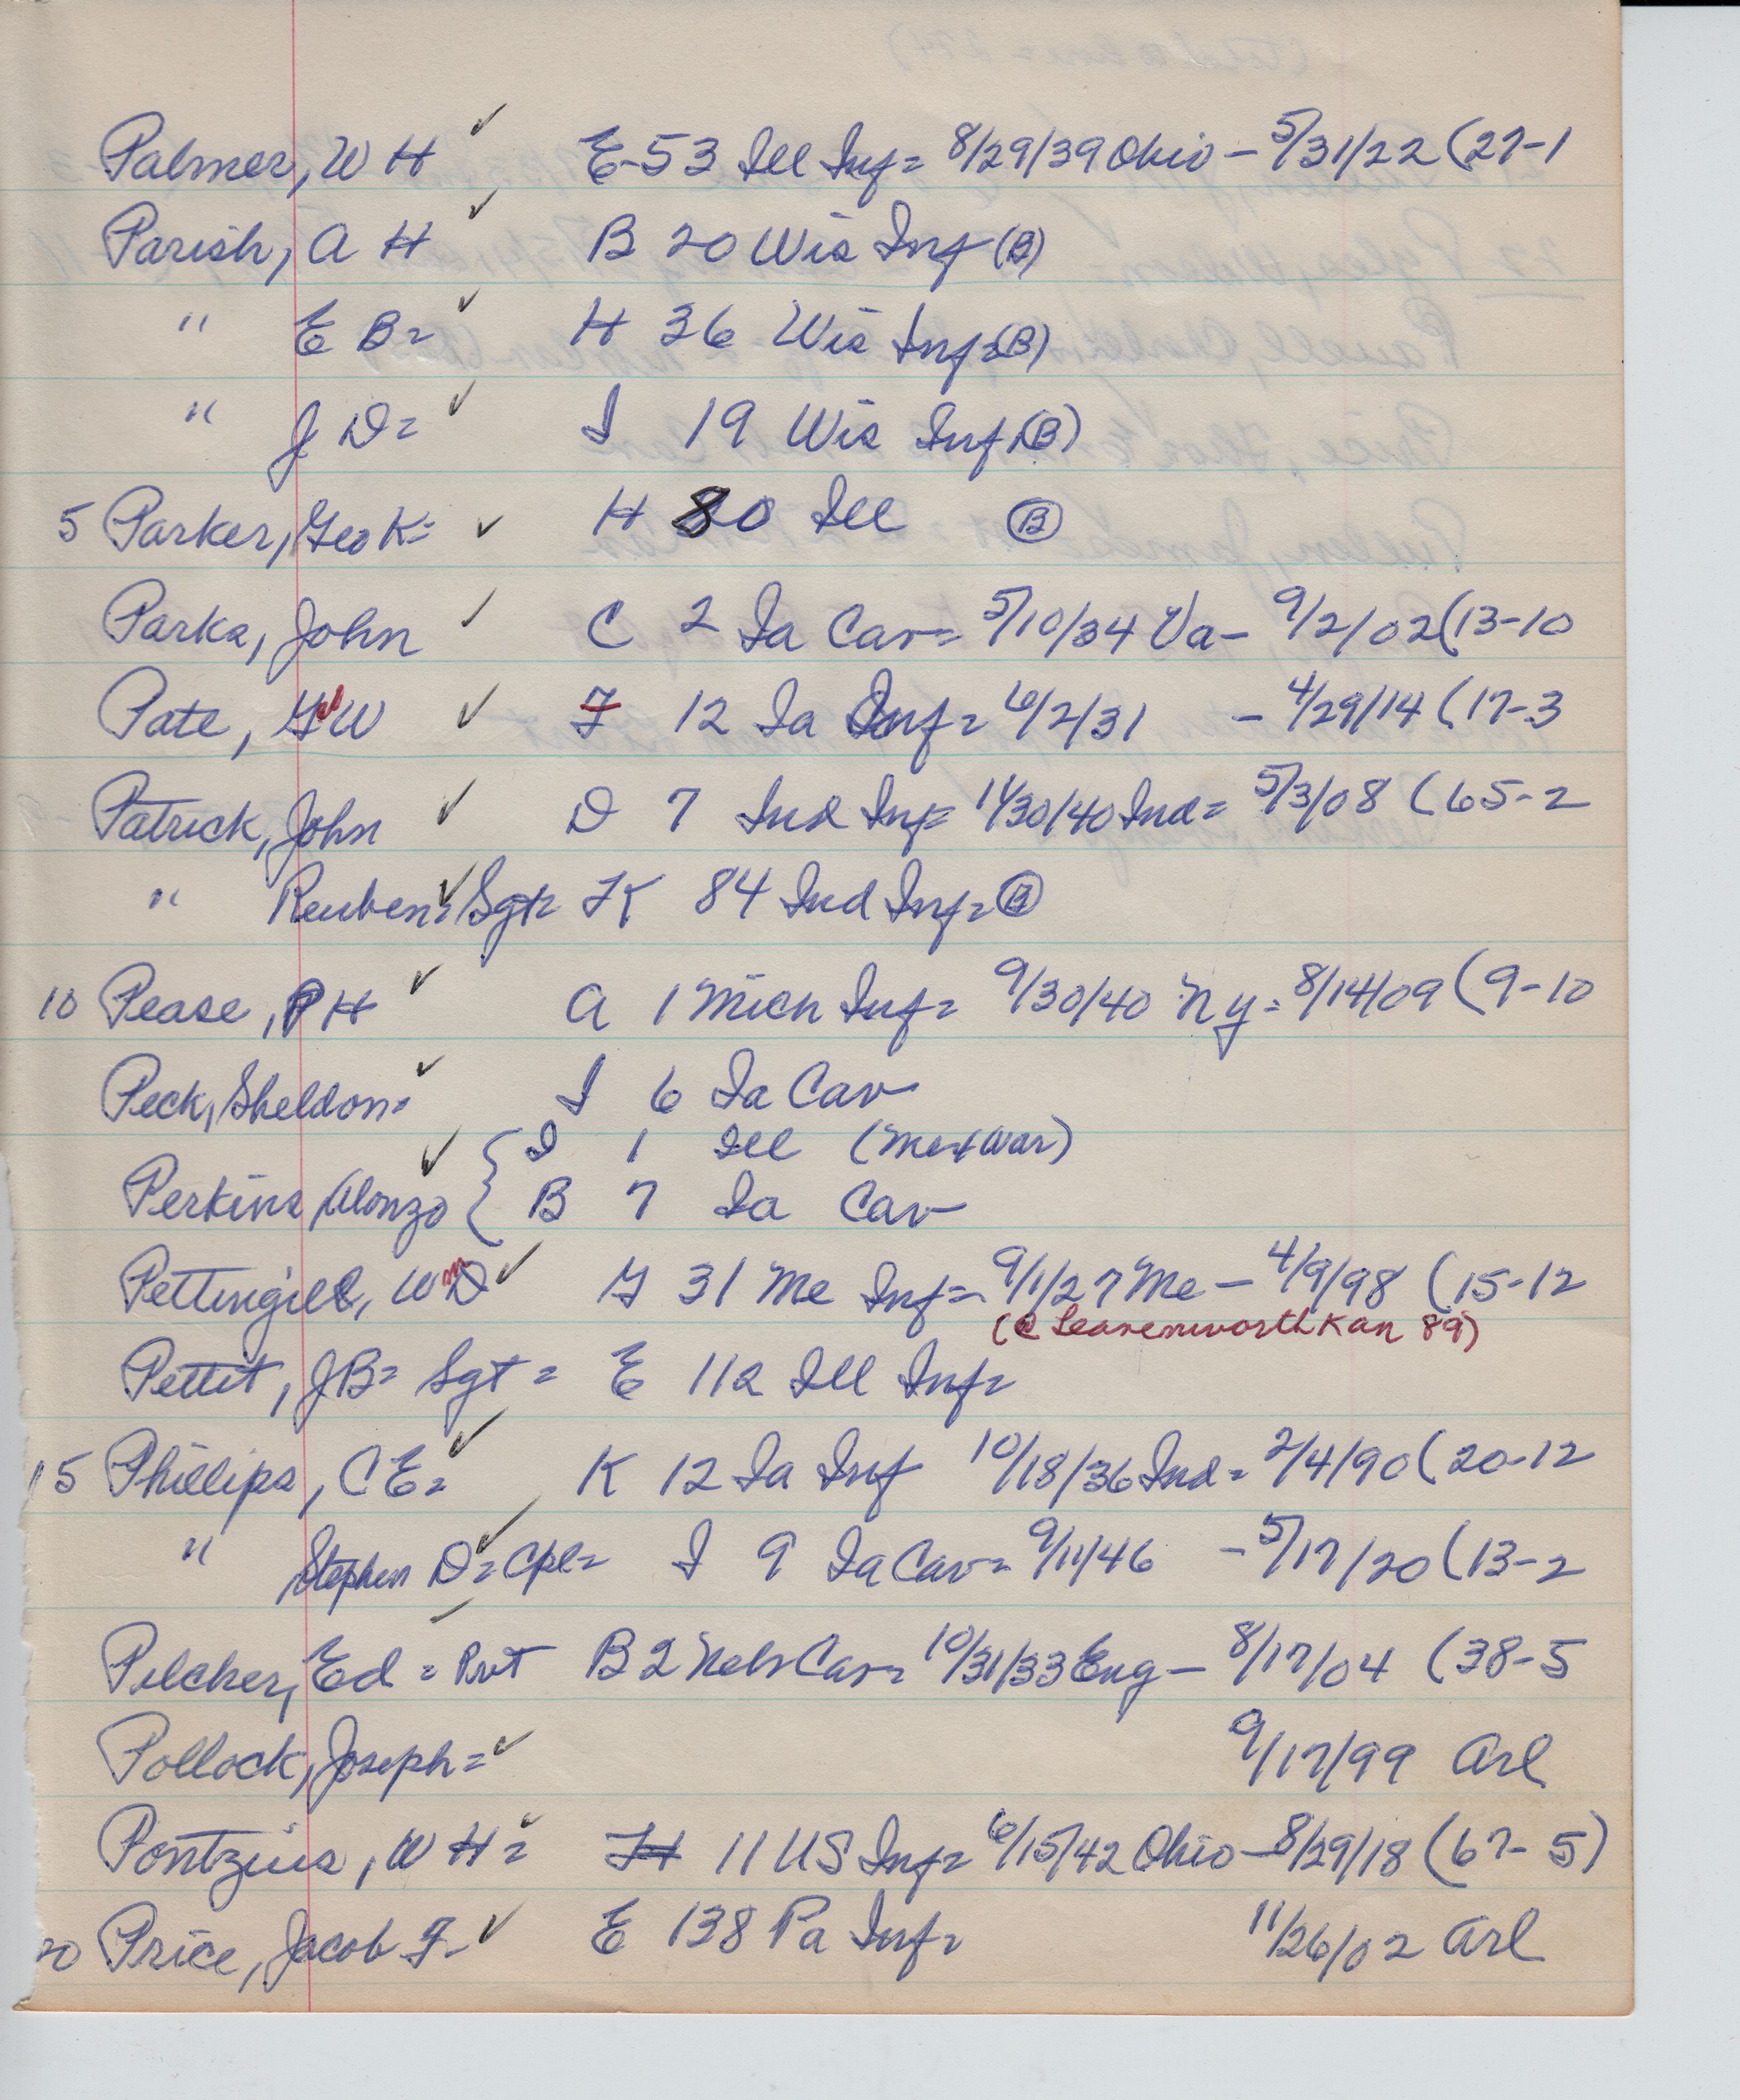 Palmer, W H ✓ E-53 Ill Inf= 8/29/39 Ohio - 5/31/22 (27-1
Parish, A H ✓ B 20 Wis Inf (B)
" E B= ✓ H 36 Wis Inf=(B)
" J D= ✓ I 19 Wis Inf=(B)
5 Parker, Geo K= ✓ H 80 Ill (B)
Parks, John ✓ C 2 Ia Cav= 5/10/34 Va- 9/2/02 (13-10
Pate, W ✓ F 12 Ia Inf= 6/2/31 - 4/29/14 (17-3
Patrick, John ✓ D 7 Ind Inf= 11/30/40 Ind= 5/3/08 (65-2
" Reuben= ✓ Sgt= K 84 Ind Inf= (B)
10 Pease, P H ✓ A 1 Mich Inf= 9/30/40 N Y= 8/14/09 (9-10
Peck, Sheldon= ✓ I 6 Ia Cav
✓ { I 1 Ill (Mex War)
Perkins, Alonzo { B 7 Ia Cav
Pettingill, Wm D ✓ G 31 Me Inf= 9/1/27 Me - 4/9/98 (15-12
(@ Leavenworth Kan 89)
Pettit, J B= Sgt = E 112 Ill Inf=
15 Phillips, C E= ✓ K 12 Ia Inf 10/18/36 Ind= 2/4/90 (20-12
" Stephen D= ✓ Cpl= I 9 Ia Cav= 9/11/46 - 5/17/20 (13-2
Pilcher, Ed = Pvt ✓ B 2 Neb Cav= 10/31/33 Eng - 8/17/04 (38-5
Pollock, Joseph= ✓ 9/17/99 Arl
Pontzius, W H= ✓ H 11 US Inf= 6/15/42 Ohio - 8/29/18 (67-5)
20 Price, Jacob F- ✓ E 138 Pa Inf= 11/26/02 Arl